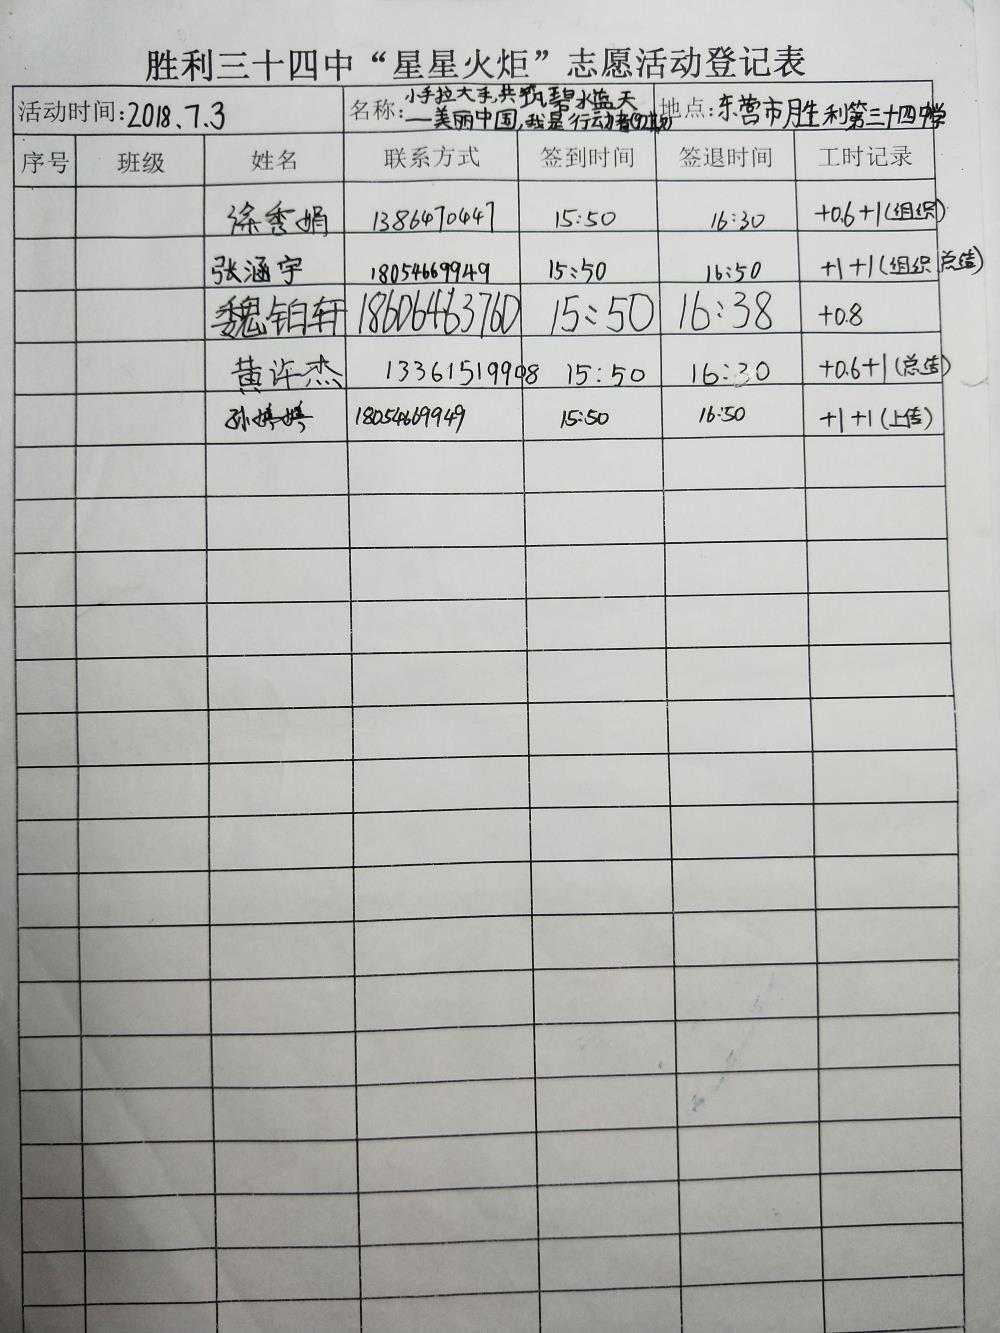 胜利三十四中“星星火炬”志愿活动登记表
活动时间:2018.7.3 名称:小手拉大手,共筑碧水蓝天 地点:东营市胜利第三十四中学
——美丽中国,我是行动者
序号 班级 姓名 联系方式 签到时间 签退时间 工时记录
徐秀娟 1386470447 15:50 16:30 +0.6+1(组织)
张涵宇 18054669949 15:50 16:50 +1+1(组织 总结)
魏铂轩 18606463760 15:50 16:38 +0.8
黄许杰 13361519908 15:50 16:30 +0.6+1(总结)
孙婷婷 18054669949 15:50 16:50 +1+1(上传)